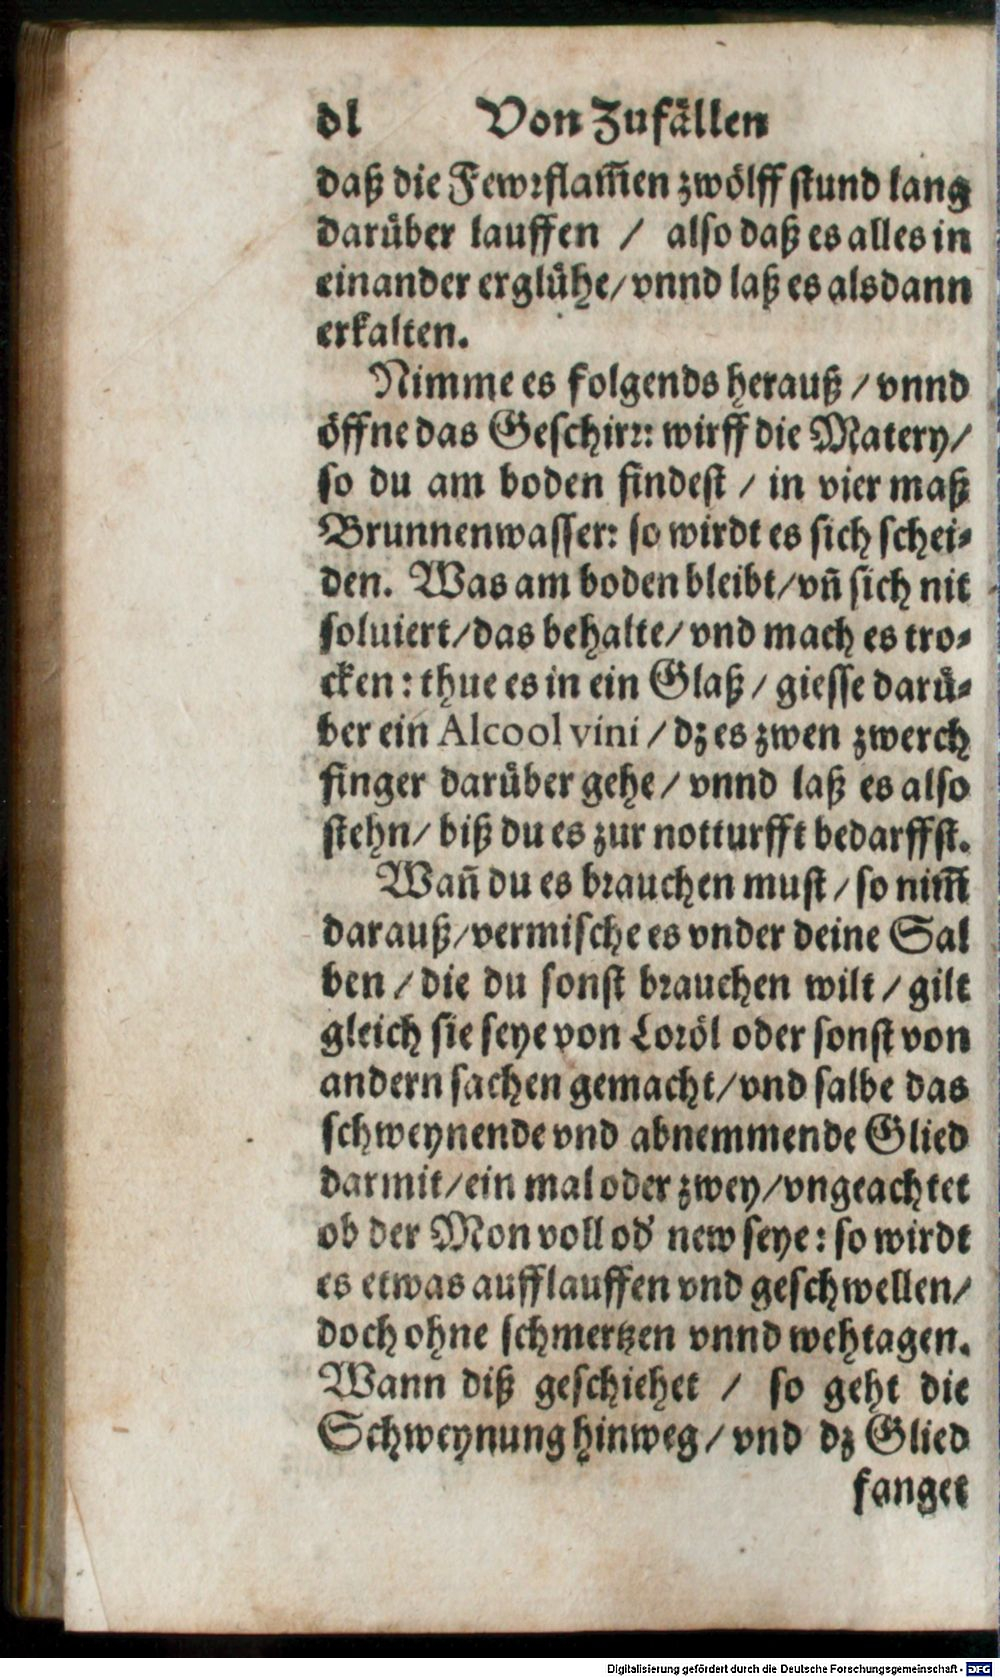 dl Von Zufällen
daß die Fewrflam̃en zwölff stund lang
darüber lauffen / also daß es alles in
einander erglühe/ vnnd laß es alsdann
erkalten.
Nimme es folgends herauß / vnnd
öffne das Geschirr: wirff die Matery/
so du am boden findest / in vier maß
Brunnenwasser: so wirdt es sich schei-
den. Was am boden bleibt/vñ sich nit
soluiert/das behalte/ vnd mach es tro-
cken: thue es in ein Glaß / giesse darü-
ber ein Alcool vini / dz es zwen zwerch
finger darüber gehe / vnnd laß es also
stehn/ biß du es zur notturfft bedarffst.
Wañ du es brauchen must / so nim̃
darauß/vermische es vnder deine Sal
ben / die du sonst brauchen wilt / gilt
gleich sie seye von Loröl oder sonst von
andern sachen gemacht/vnd salbe das
schweynende vnd abnemmende Glied
darmit/ein mal oder zwey/vngeachtet
ob der Mon voll od' new seye: so wirdt
es etwas aufflauffen vnd geschwellen/
doch ohne schmertzen vnnd wehtagen.
Wann diß geschiehet / so geht die
Schweynung hinweg / vnd dz Glied
fanget
Digitalisierung gefördert durch die Deutsche Forschungsgemeinschaft - DFG